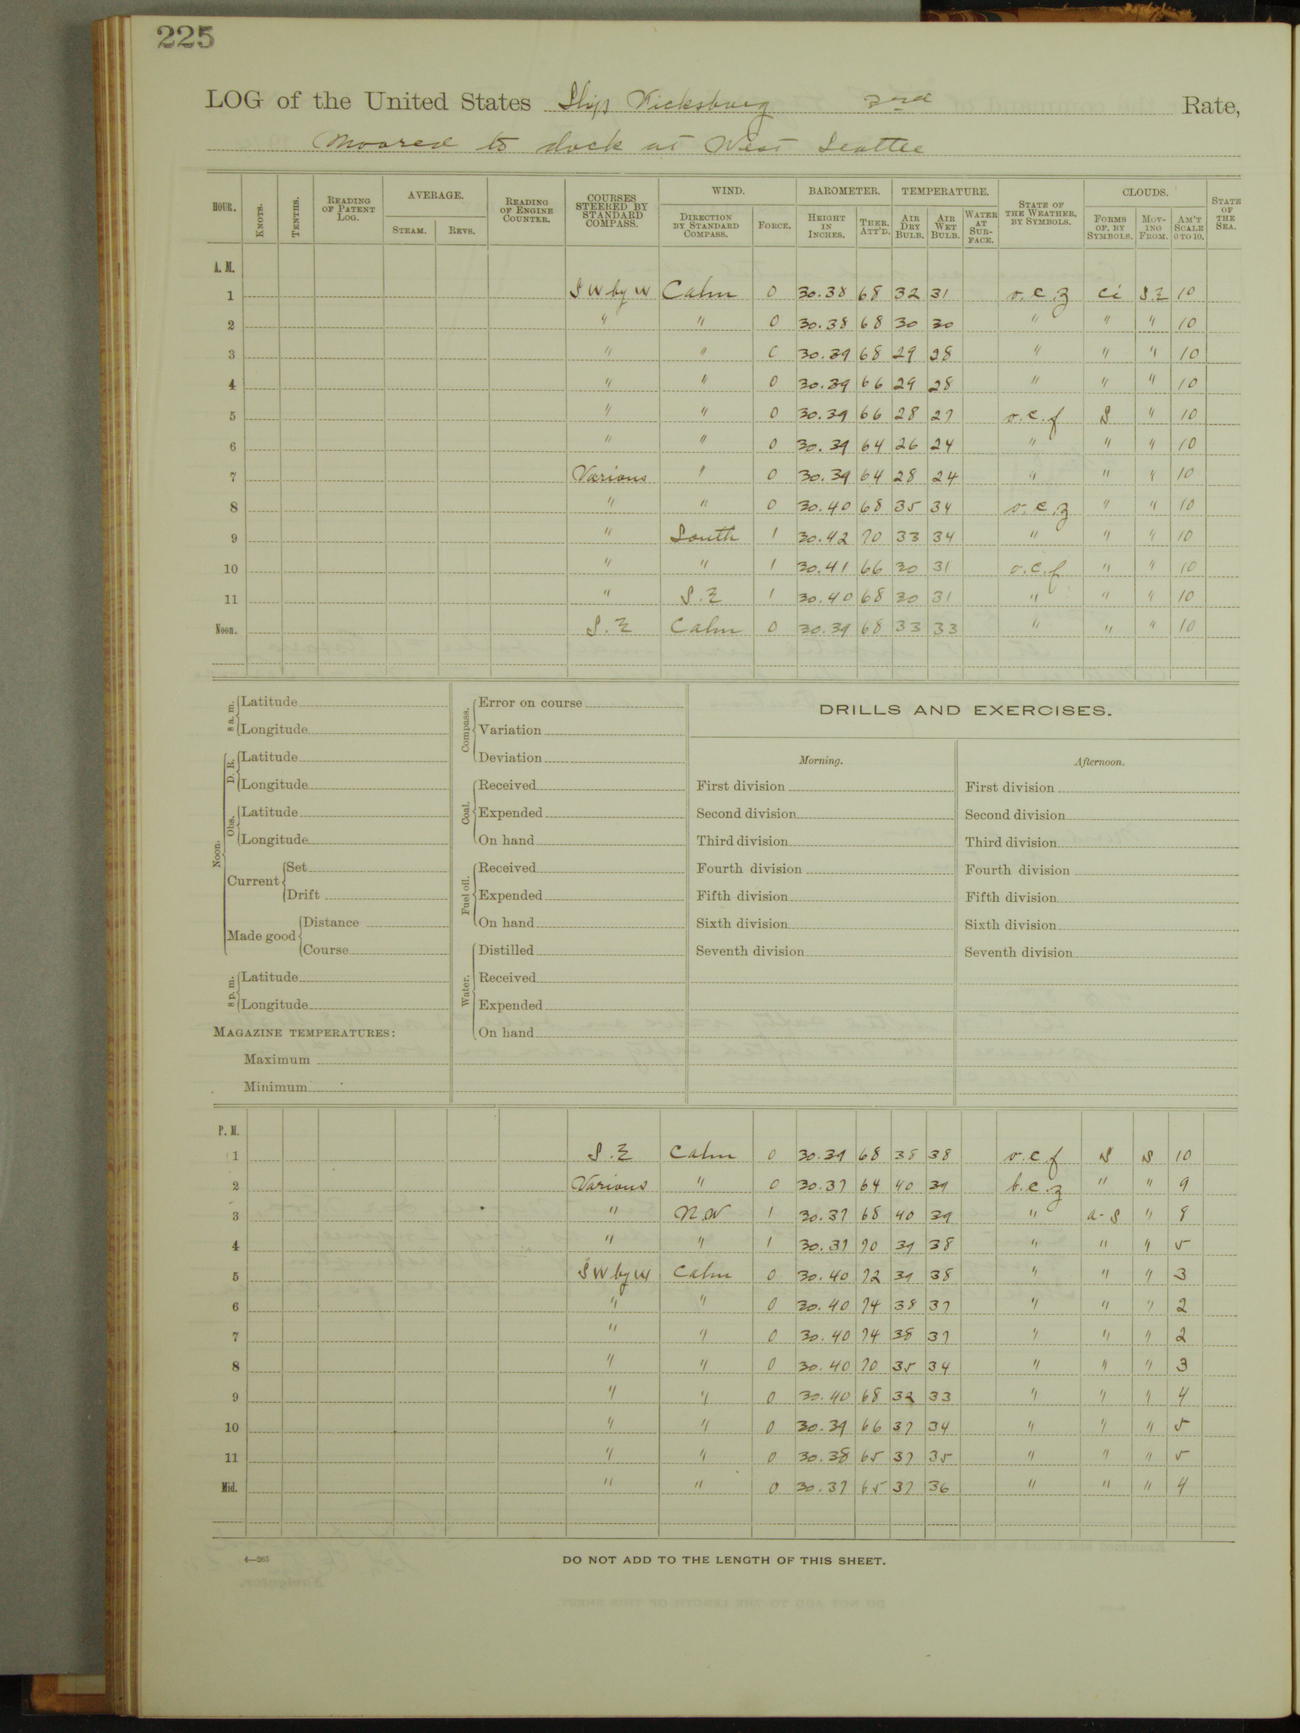 225
LOG of the United States Ship Vicksburg 3rd Rate,
Moored to dock at West Seattle
HOUR. KNOTS. TENTHS. READING OF PATENT LOG. AVERAGE. STEAM. REVS. READING OF ENGINE COUNTER. COURSES STEERED BY STANDARD COMPASS. WIND. DIRECTION BY STANDARD COMPASS. FORCE. BAROMETER. HEIGHT IN INCHES. THER. ATT'D. TEMPERATURE. AIR DRY BULB. AIR WET BULB. WATER AT SURFACE. STATE OF THE WEATHER, BY SYMBOLS. CLOUDS. FORMS OF, BY SYMBOLS. MOVING FROM. AM'T SCALE 0 TO 10. STATE OF THE SEA.
A. M.
1 SW by W Calm 0 30.38 68 32 31 o.c.z ci S.E 10
2 " " 0 30.38 68 30 30 " " " 10
3 " " 0 30.39 68 29 28 " " " 10
4 " " 0 30.39 66 29 28 " " " 10
5 " " 0 30.39 66 28 27 o.c.f S " 10
6 " " 0 30.39 64 26 24 " " " 10
7 Various " 0 30.39 64 28 24 " " " 10
8 " " 0 30.40 68 35 34 o.c.z " " 10
9 " South 1 30.42 70 33 34 " " " 10
10 " " 1 30.41 66 30 31 o.c.f " " 10
11 " S.E 1 30.40 68 30 31 " " " 10
Noon. S.E Calm 0 30.39 68 33 33 " " " 10
8 a. m. Latitude
Longitude
Noon. D. R. Latitude
Longitude
Obs. Latitude
Longitude
Current Set
Drift
Made good Distance
Course
8 p. m. Latitude
Longitude
MAGAZINE TEMPERATURES:
Maximum
Minimum
Compass. Error on course
Variation
Deviation
Coal. Received
Expended
On hand
Fuel oil. Received
Expended
On hand
Water. Distilled
Received
Expended
On hand
DRILLS AND EXERCISES.
Morning.
First division
Second division
Third division
Fourth division
Fifth division
Sixth division
Seventh division
Afternoon.
First division
Second division
Third division
Fourth division
Fifth division
Sixth division
Seventh division
P. M.
1 S.E Calm 0 30.39 68 38 38 o.c.f S S 10
2 Various " 0 30.37 64 40 39 b.c.z " " 9
3 " N.W 1 30.37 68 40 39 " a-s " 8
4 " " 1 30.37 70 39 38 " " " 5
5 SW by W Calm 0 30.40 72 39 38 " " " 3
6 " " 0 30.40 74 38 37 " " " 2
7 " " 0 30.40 74 38 37 " " " 2
8 " " 0 30.40 70 35 34 " " " 3
9 " " 0 30.40 68 32 33 " " " 4
10 " " 0 30.39 66 37 34 " " " 5
11 " " 0 30.38 65 37 35 " " " 5
Mid. " " 0 30.37 65 37 36 " " " 4
4—265
DO NOT ADD TO THE LENGTH OF THIS SHEET.